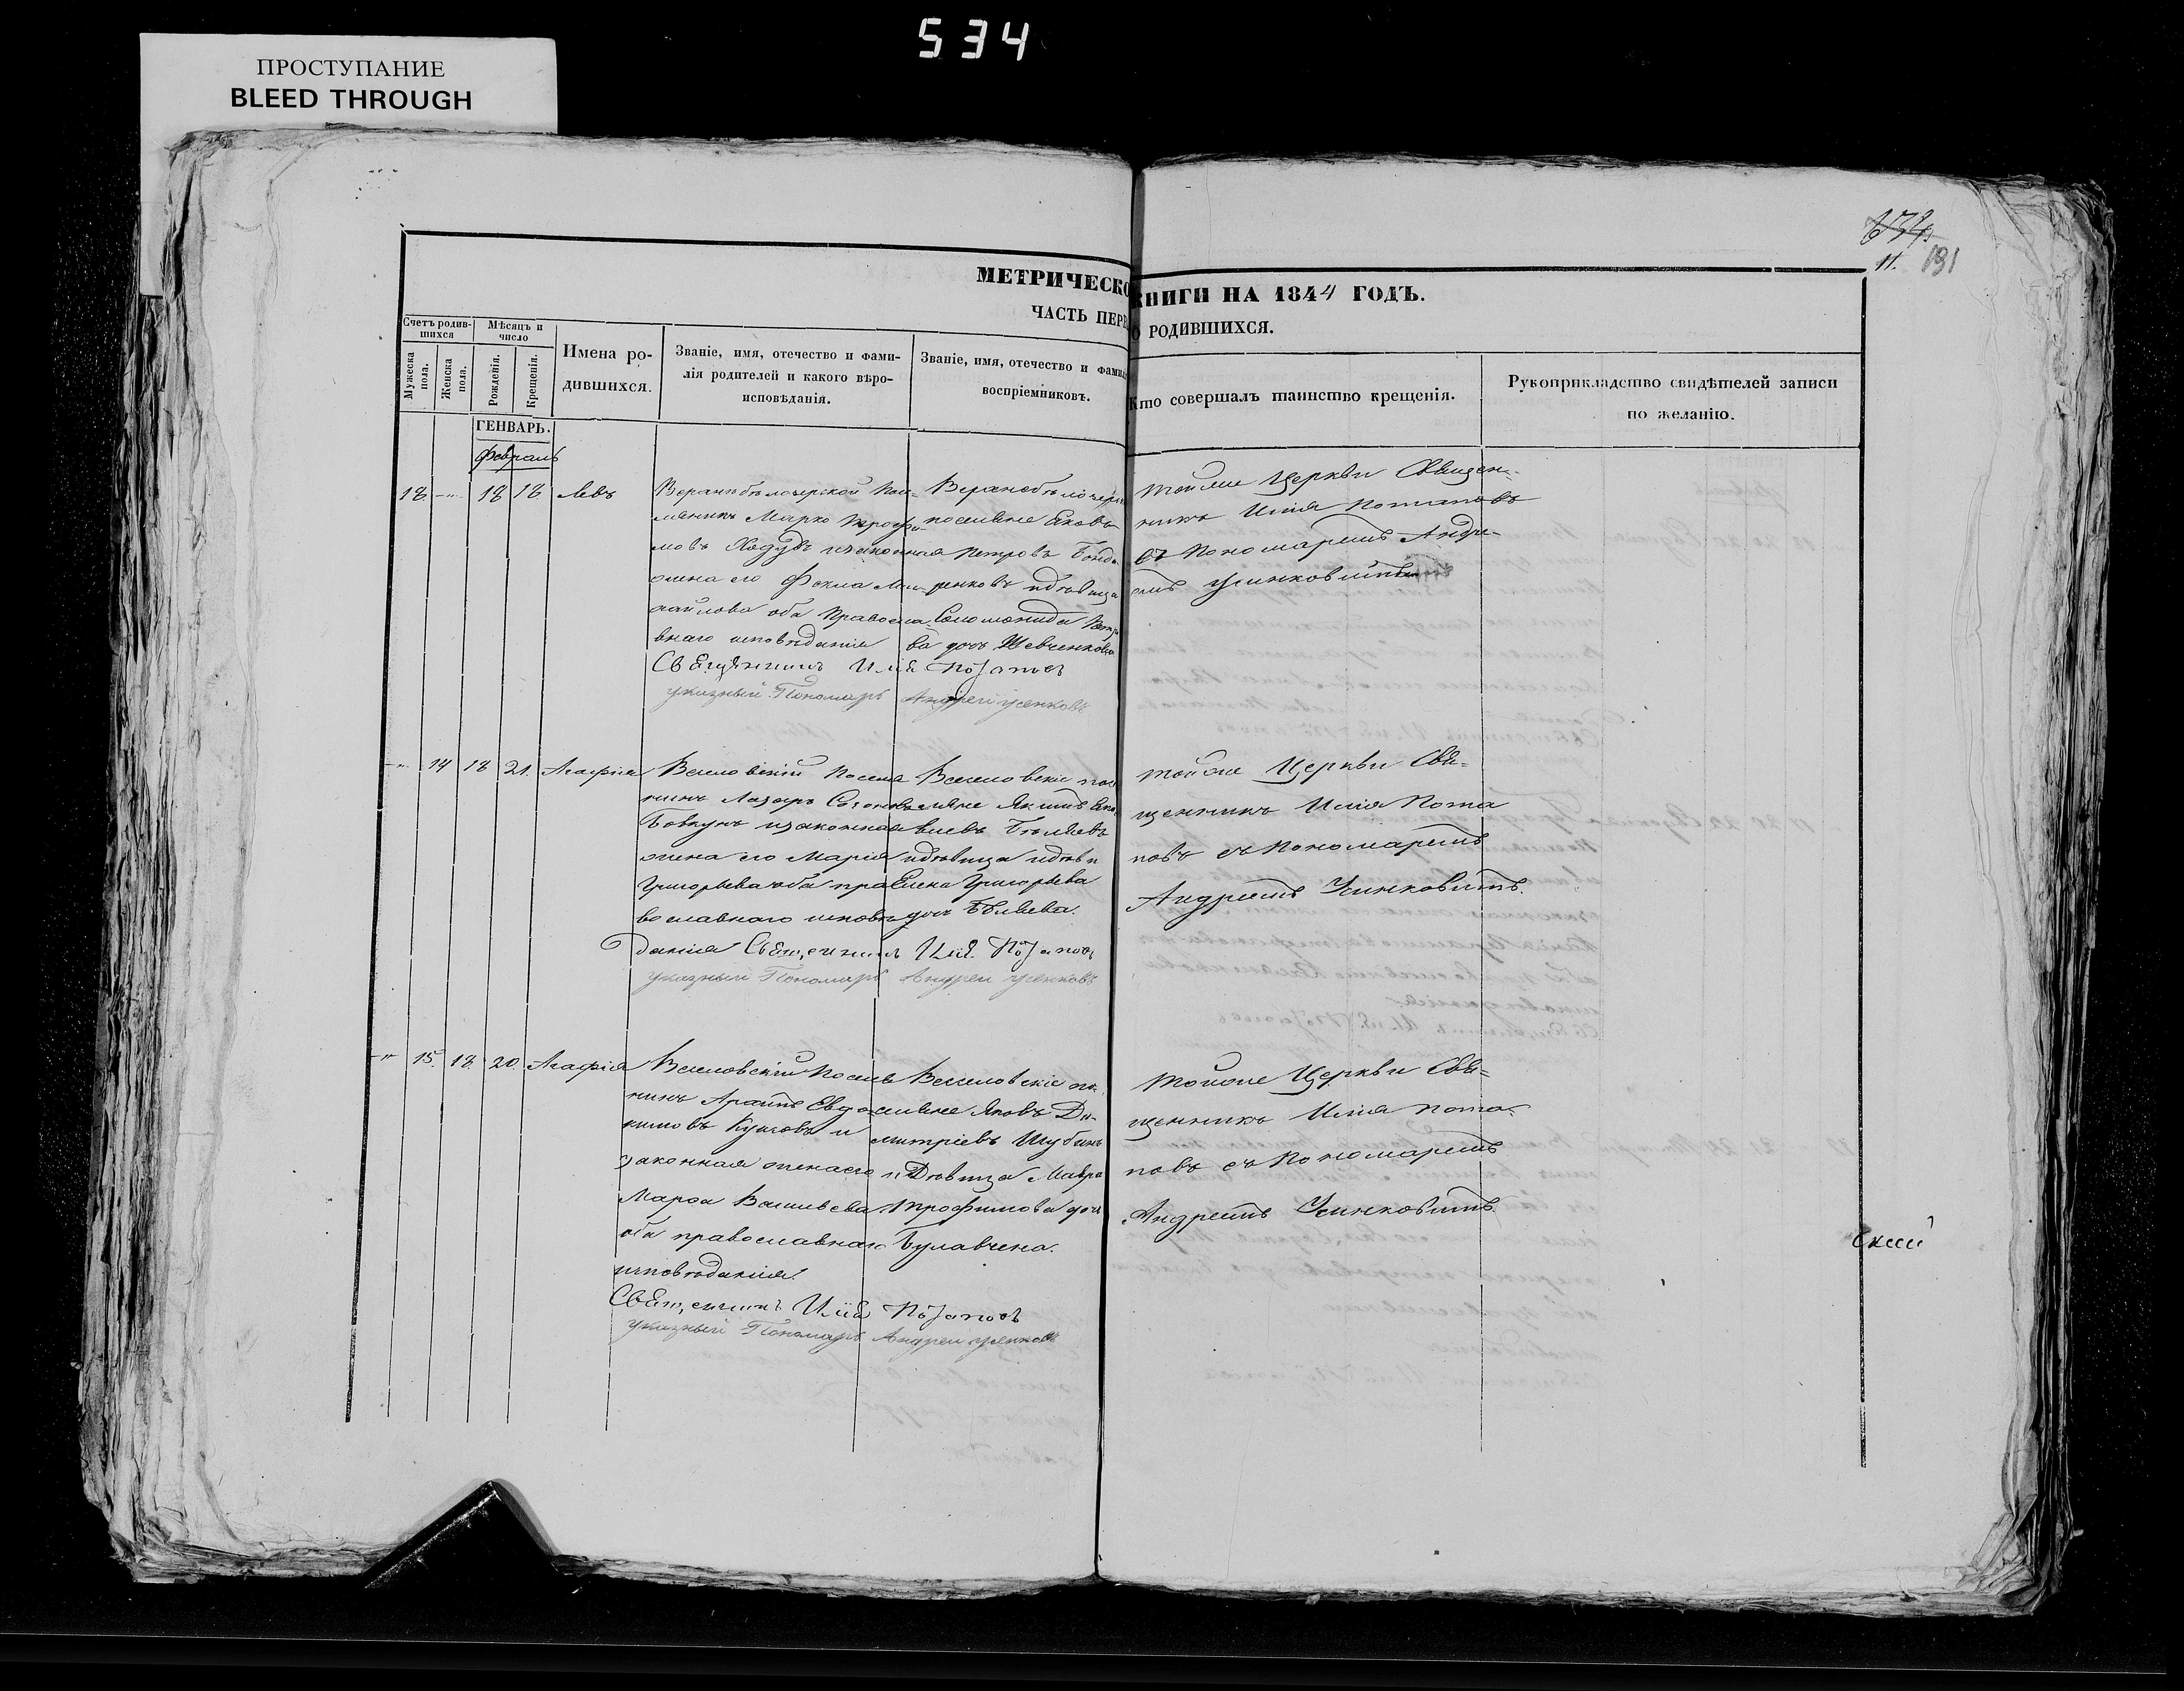 534
ПРОСТУПАНИЕ
BLEED THROUGH
634.
11. 191
МЕТРИЧЕСКО
КНИГИ НА 1844 ГОДЪ.
ЧАСТЬ ПЕРВ
О РОДИВШИХСЯ.
Счетъ родив-
шихся
Мѣсяцъ и
число
Мужеска
пола.
Женска
пола.
Рожденія.
Крещенія.
Имена ро-
дившихся.
Званіе, имя, отечество и фами-
лія родителей и какого вѣро-
исповѣданія.
Званіе, имя, отечество и фами
воспріемниковъ.
Кто совершалъ таинство крещенія.
Рукоприкладство свидѣтелей записи
по желанію.
ГЕНВАРЬ.
Февраль
18 18 18 Левъ
Марко
законная
жена его Фекла Ми-
хайлова оба Правосла
внаго исповѣданія
Священникъ Илія Потапов
указный Пономарь Андрей Усенковъ
поселяне Яковъ
Петровъ Бонда
ренковъ идѣвица
Соломонида Петро
ва дочь Шевченкова
Тойже Церкви Священ-
никъ Илія Потаповъ
съ Пономаремъ Андре-
емъ Усинковимъ
14 18 21. Агафія
Веселовскій Поселя
нинъ Лазарь
Ковтунъ изаконная
жена его Марія
Григорьева оба пра
вославнаго исповѣ
данія Священникъ Илія Потапов
указный Пономарь Андрей Усенковъ
Веселовскіе пос
еляне Якимъ
влевъ Бѣляевъ
идѣвица
Елена Григорьева
дочь Бѣляева.
Тойже Церкви Свя-
щенникъ Илія Пота
повъ съ Пономаремъ
Андреемъ Усинковимъ.
15. 18 20. Агафія
Веселовскій Поселя
нинъ Евдо
кимовъ и
законная жена его
Марфа Васильева
оба православнаго
исповѣданія.
Священникъ Илія Потаповъ
указный Пономарь Андрей Усенковъ
Веселовскіе по
селяне Яковъ Ди-
митріевъ Шубинъ
и Дѣвица Мавра
Трофимова дочь
Булавчена.
Тойже Церкви Свя-
щенникъ Илія Пота-
повъ съ Пономаремъ
Андреемъ Усинковимъ